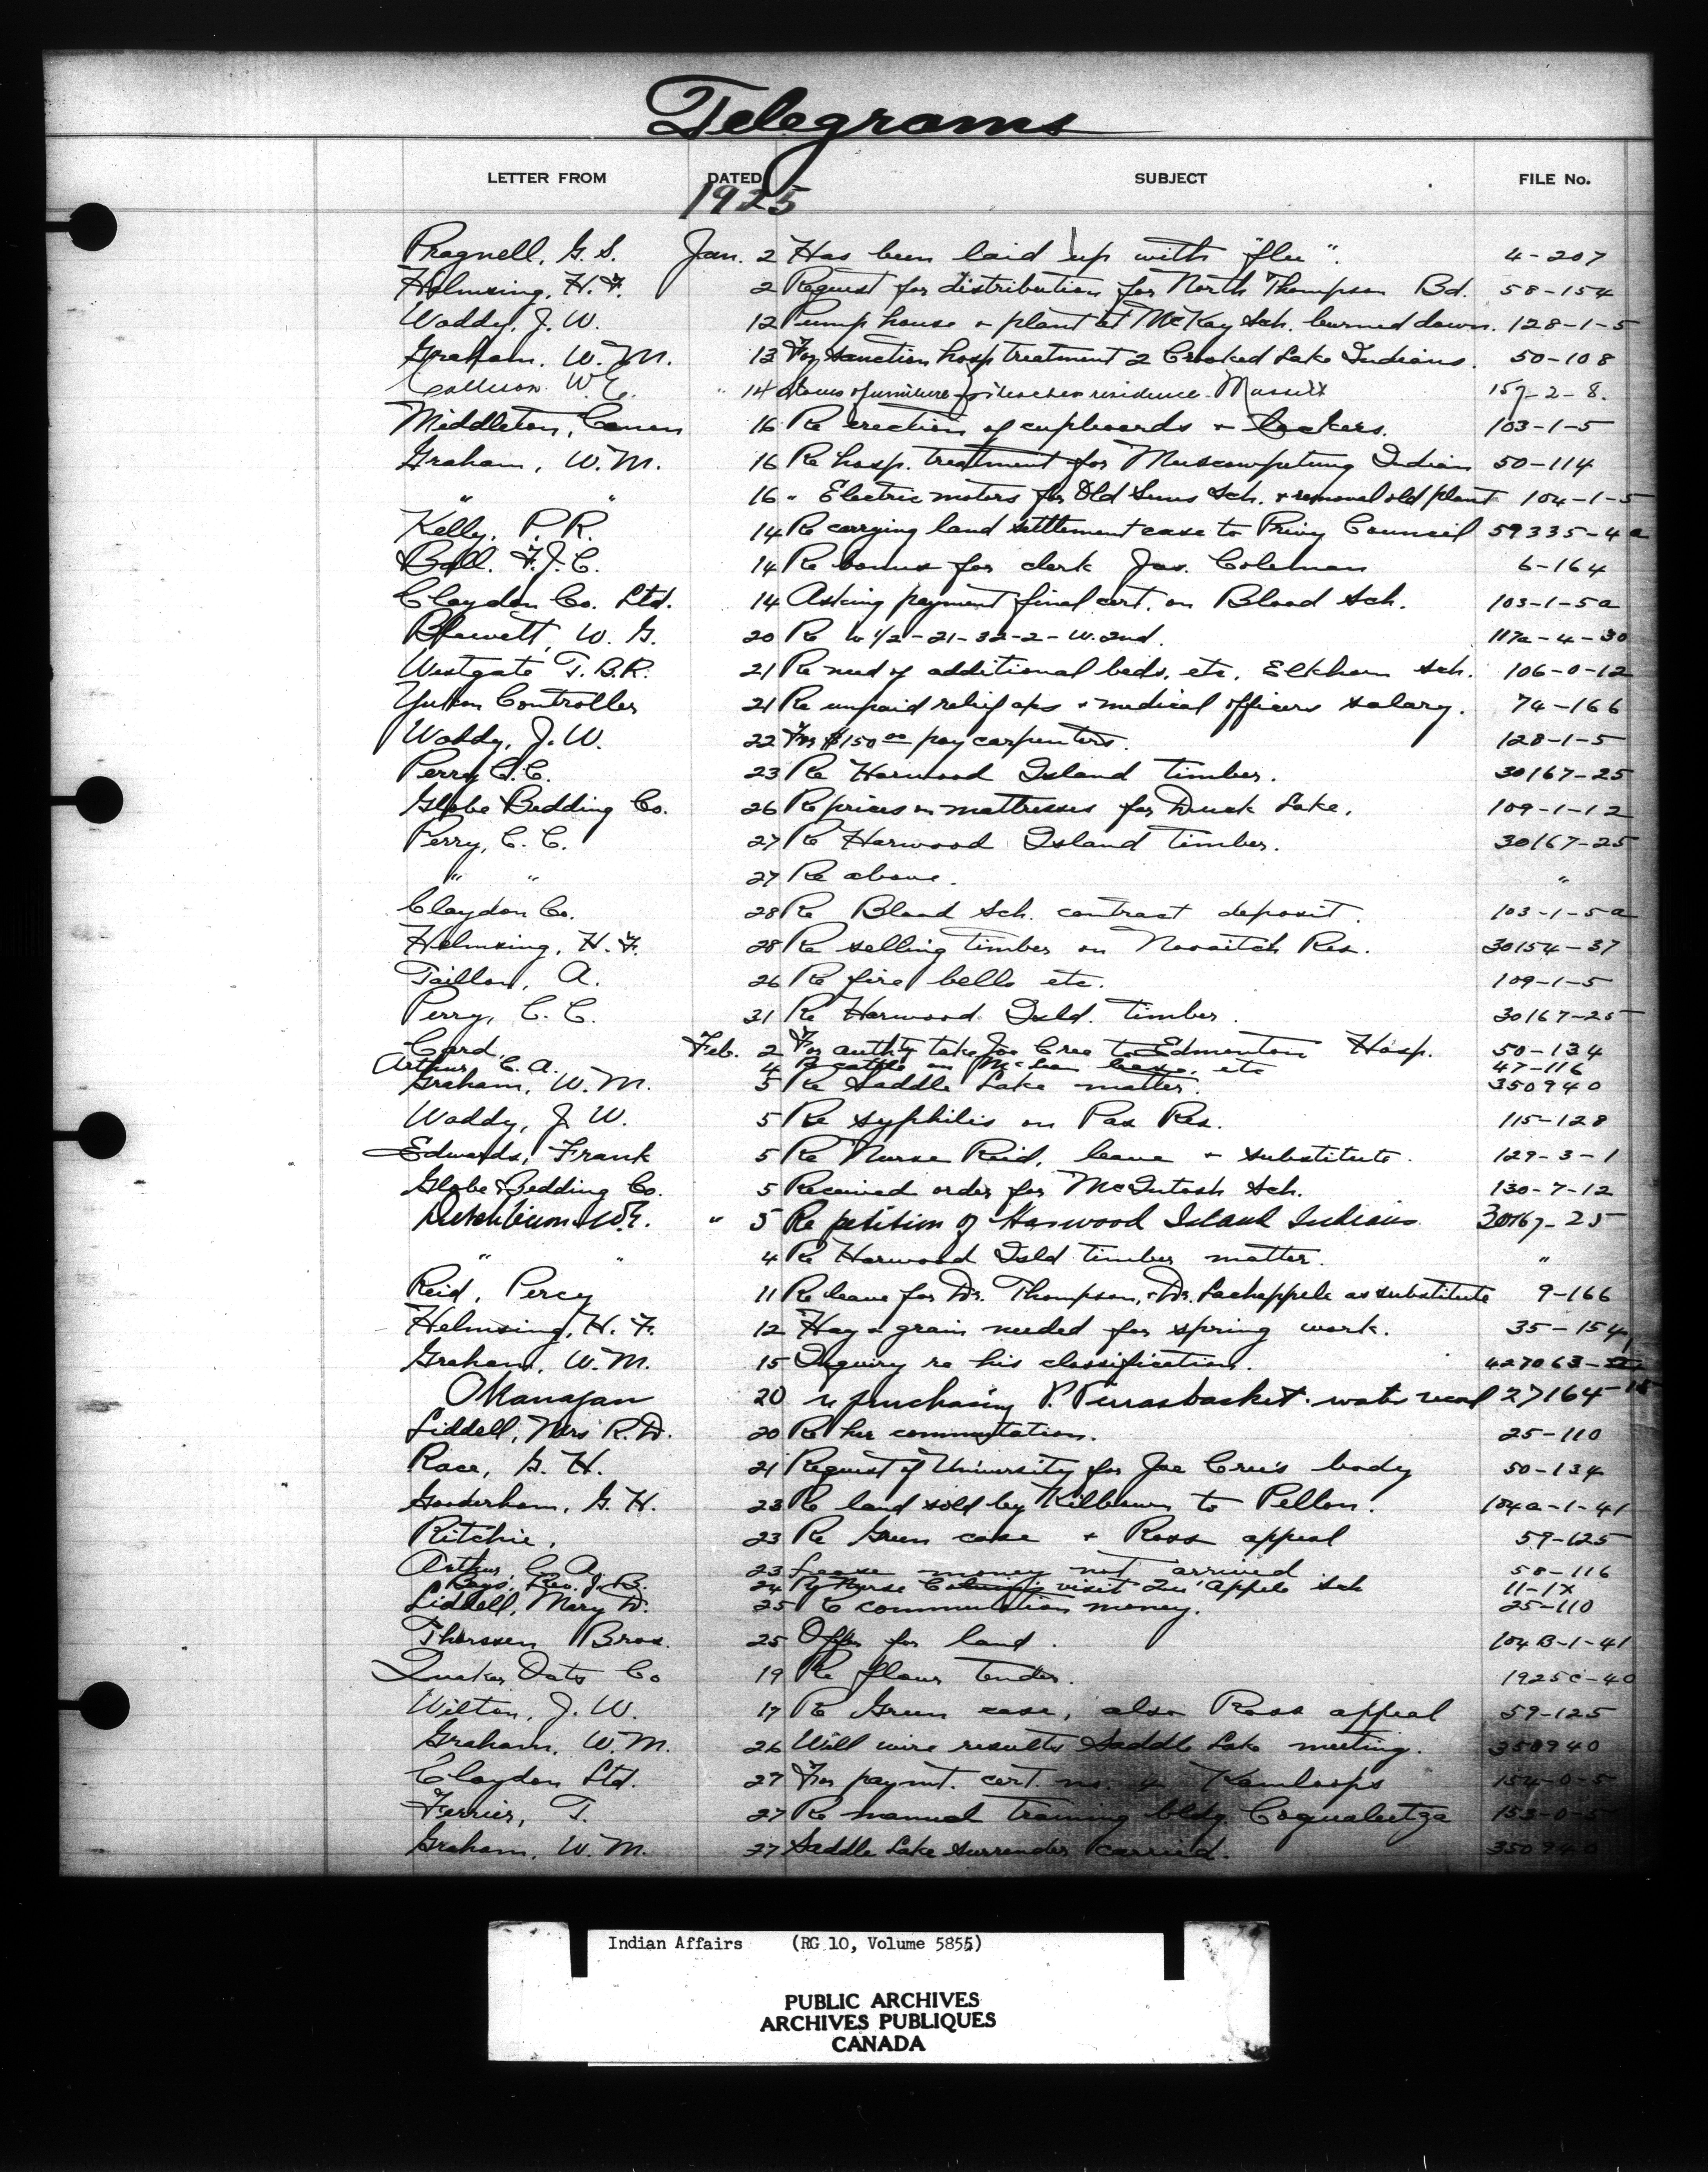 Telegrams
LETTER FROM DATED SUBJECT FILE No.
1925
Pragnell, G. S. Jan. 2 Has been laid up with "flu". 4-207
Helmsing, H. F. 2 Request for distribution for North Thompson Bd. 58-154
Waddy, J. W. 12 Pump house + plant at McKay Sch. burned down. 128-1-5
Graham, W. M. 13 For sanction hosp treatment 2 Crooked Lake Indians. 50-108
Collison W.E. " 14 furniture for teachers residence Massett 157-2-8.
Middleton, Canon 16 Re erection of cupboards + lockers. 103-1-5
Graham, W. M. 16 Re hosp. treatment for Muscowpetung Indian 50-114
" " 16 " Electric motors for Old Suns Sch. + removal old plant 104-1-5
Kelly, P. R. 14 Re carrying land settlement case to Privy Council 59335-4a
Ball, F. J. C. 14 Re bonus for clerk Jas. Coleman 6-164
Claydon Co. Ltd. 14 Asking payment final cert. on Blood Sch. 103-1-5a
Blewett, W. G. 20 Re W 1/2-21-32-2-W. 2nd. 117a-4-30
Westgate T. B. R. 21 Re need of additional beds, etc, Elkhorn Sch. 106-0-12
Yukon Controller 21 Re unpaid relief a/cs + medical officers salary. 74-166
Waddy, J. W. 22 For $150.00 pay carpenters. 128-1-5
Perry C. C. 23 Re Harwood Island timber. 30167-25
Globe Bedding Co. 26 Re prices on mattresses for Duck Lake. 109-1-12
Perry, C. C. 27 Re Harwood Island timber. 30167-25
" " 27 Re above. "
Claydon Co. 28 Re Blood Sch. contract deposit. 103-1-5a
Helmsing, H. F. 28 Re selling timber on Nooaitch Res. 30154-37
Taillon, A. 26 Re fire bells etc. 109-1-5
Perry, C. C. 31 Re Harwood Isld. timber. 30167-25
Card, Feb. 2 For authty take Joe Cree to Edmonton Hosp. 50-134
Arthur, C. A. 4 Re cattle on McLean lease, etc 47-116
Graham, W. M. 5 Re Saddle Lake matter. 350940
Waddy, J. W. 5 Re syphilis on Pas Res. 115-128
Edwards, Frank 5 Re Nurse Reid, leave + substitute. 129-3-1
Globe Bedding Co. 5 Received order for McIntosh Sch. 130-7-12
Ditchburn W.E. " 5 Re petition of Harwood Island Indians 30167-25
" " 4 Re Harwood Isld timber matter. "
Reid, Percy 11 Re leave for Dr. Thompson, + Dr. Lachappele as substitute 9-166
Helmsing, H. F. 12 Hay + grain needed for spring work. 35-154
Graham, W. M. 15 Inquiry re his classification. 427063-
Okanagan 20 re purchasing P. Pierrasbasket water record 27164-15
Liddell, Mrs R. D. 20 Re her commutation. 25-110
Race, G. H. 21 Request of University for Joe Cree's body 50-134
Gooderham, G. H. 23 Re land sold by Kilburn to Pellon. 104a-1-41
Ritchie, 23 Re Green case + Ross appeal 59-125
Arthur, C. A. 23 Lease money not arrived 58-116
Bays, Rev. J. B. 24 Re Nurse visit Qu'Appele Sch 11-1X
Liddell, Mary D. 25 Re commutation money. 25-110
Thorssen Bros. 25 Offer for land. 104B-1-41
Quaker Oats Co 19 Re flour tender. 1925C-40
Wilton, J. W. 17 Re Green case, also Ross appeal 59-125
Graham, W. M. 26 Will wire results Saddle Lake meeting. 350940
Claydon Ltd. 27 For paymt. cert. no. 4 Kamloops 154-0-5
Ferrier, T. 27 Re manual training bldg. Coqualeetza 153-0-5
Graham, W. M. 27 Saddle Lake surrender carried. 350940
Indian Affairs (RG 10, Volume 5855)
PUBLIC ARCHIVES
ARCHIVES PUBLIQUES
CANADA